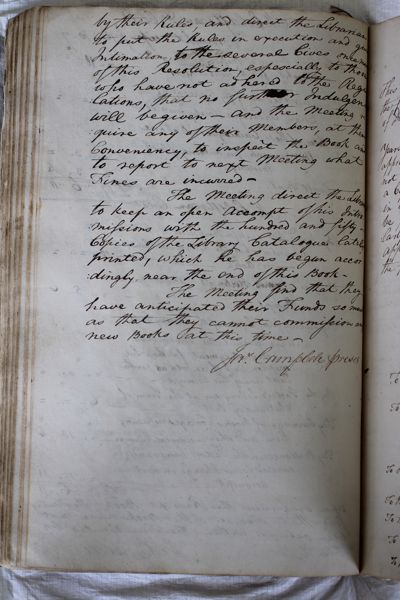 by their Rules and direct the Librarian
to put the Rules in execution and give
Intimation to the several Lives
of this Resolution especially to those
who have not adhered to the Regu
lations, that no further Indulgen
will be given – and the Meeting
quire any of their Members, at their
Conveniency, to inspect the Book and
to report to next Meeting what
Fines are incurred –
The Meeting direct the Libra
to keep an open Accompt of his Inter
missions with the hundred and fifty
Copies of the Library Catalogue late
printed, which he has begun accor
:dingly, near the end of this Book –
The Meeting find that they
have anticipated their Funds so m
as that they cannot commission
new Books at this time –
Jno. Campbell preses
To
To
To
To
To